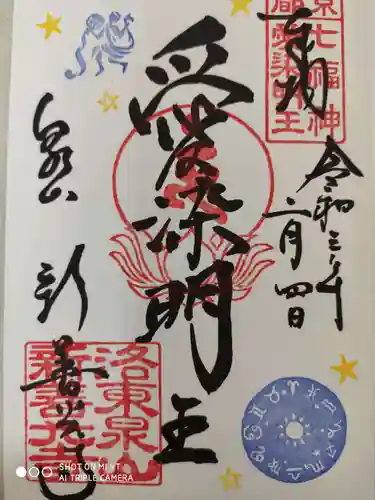 奉拝
京七福神
都愛染明王
令和三年
二月四日
愛染明王
泉山 新善光寺
洛東泉山
新善光寺
SHOT ON
AI TRIPLE CAMERA